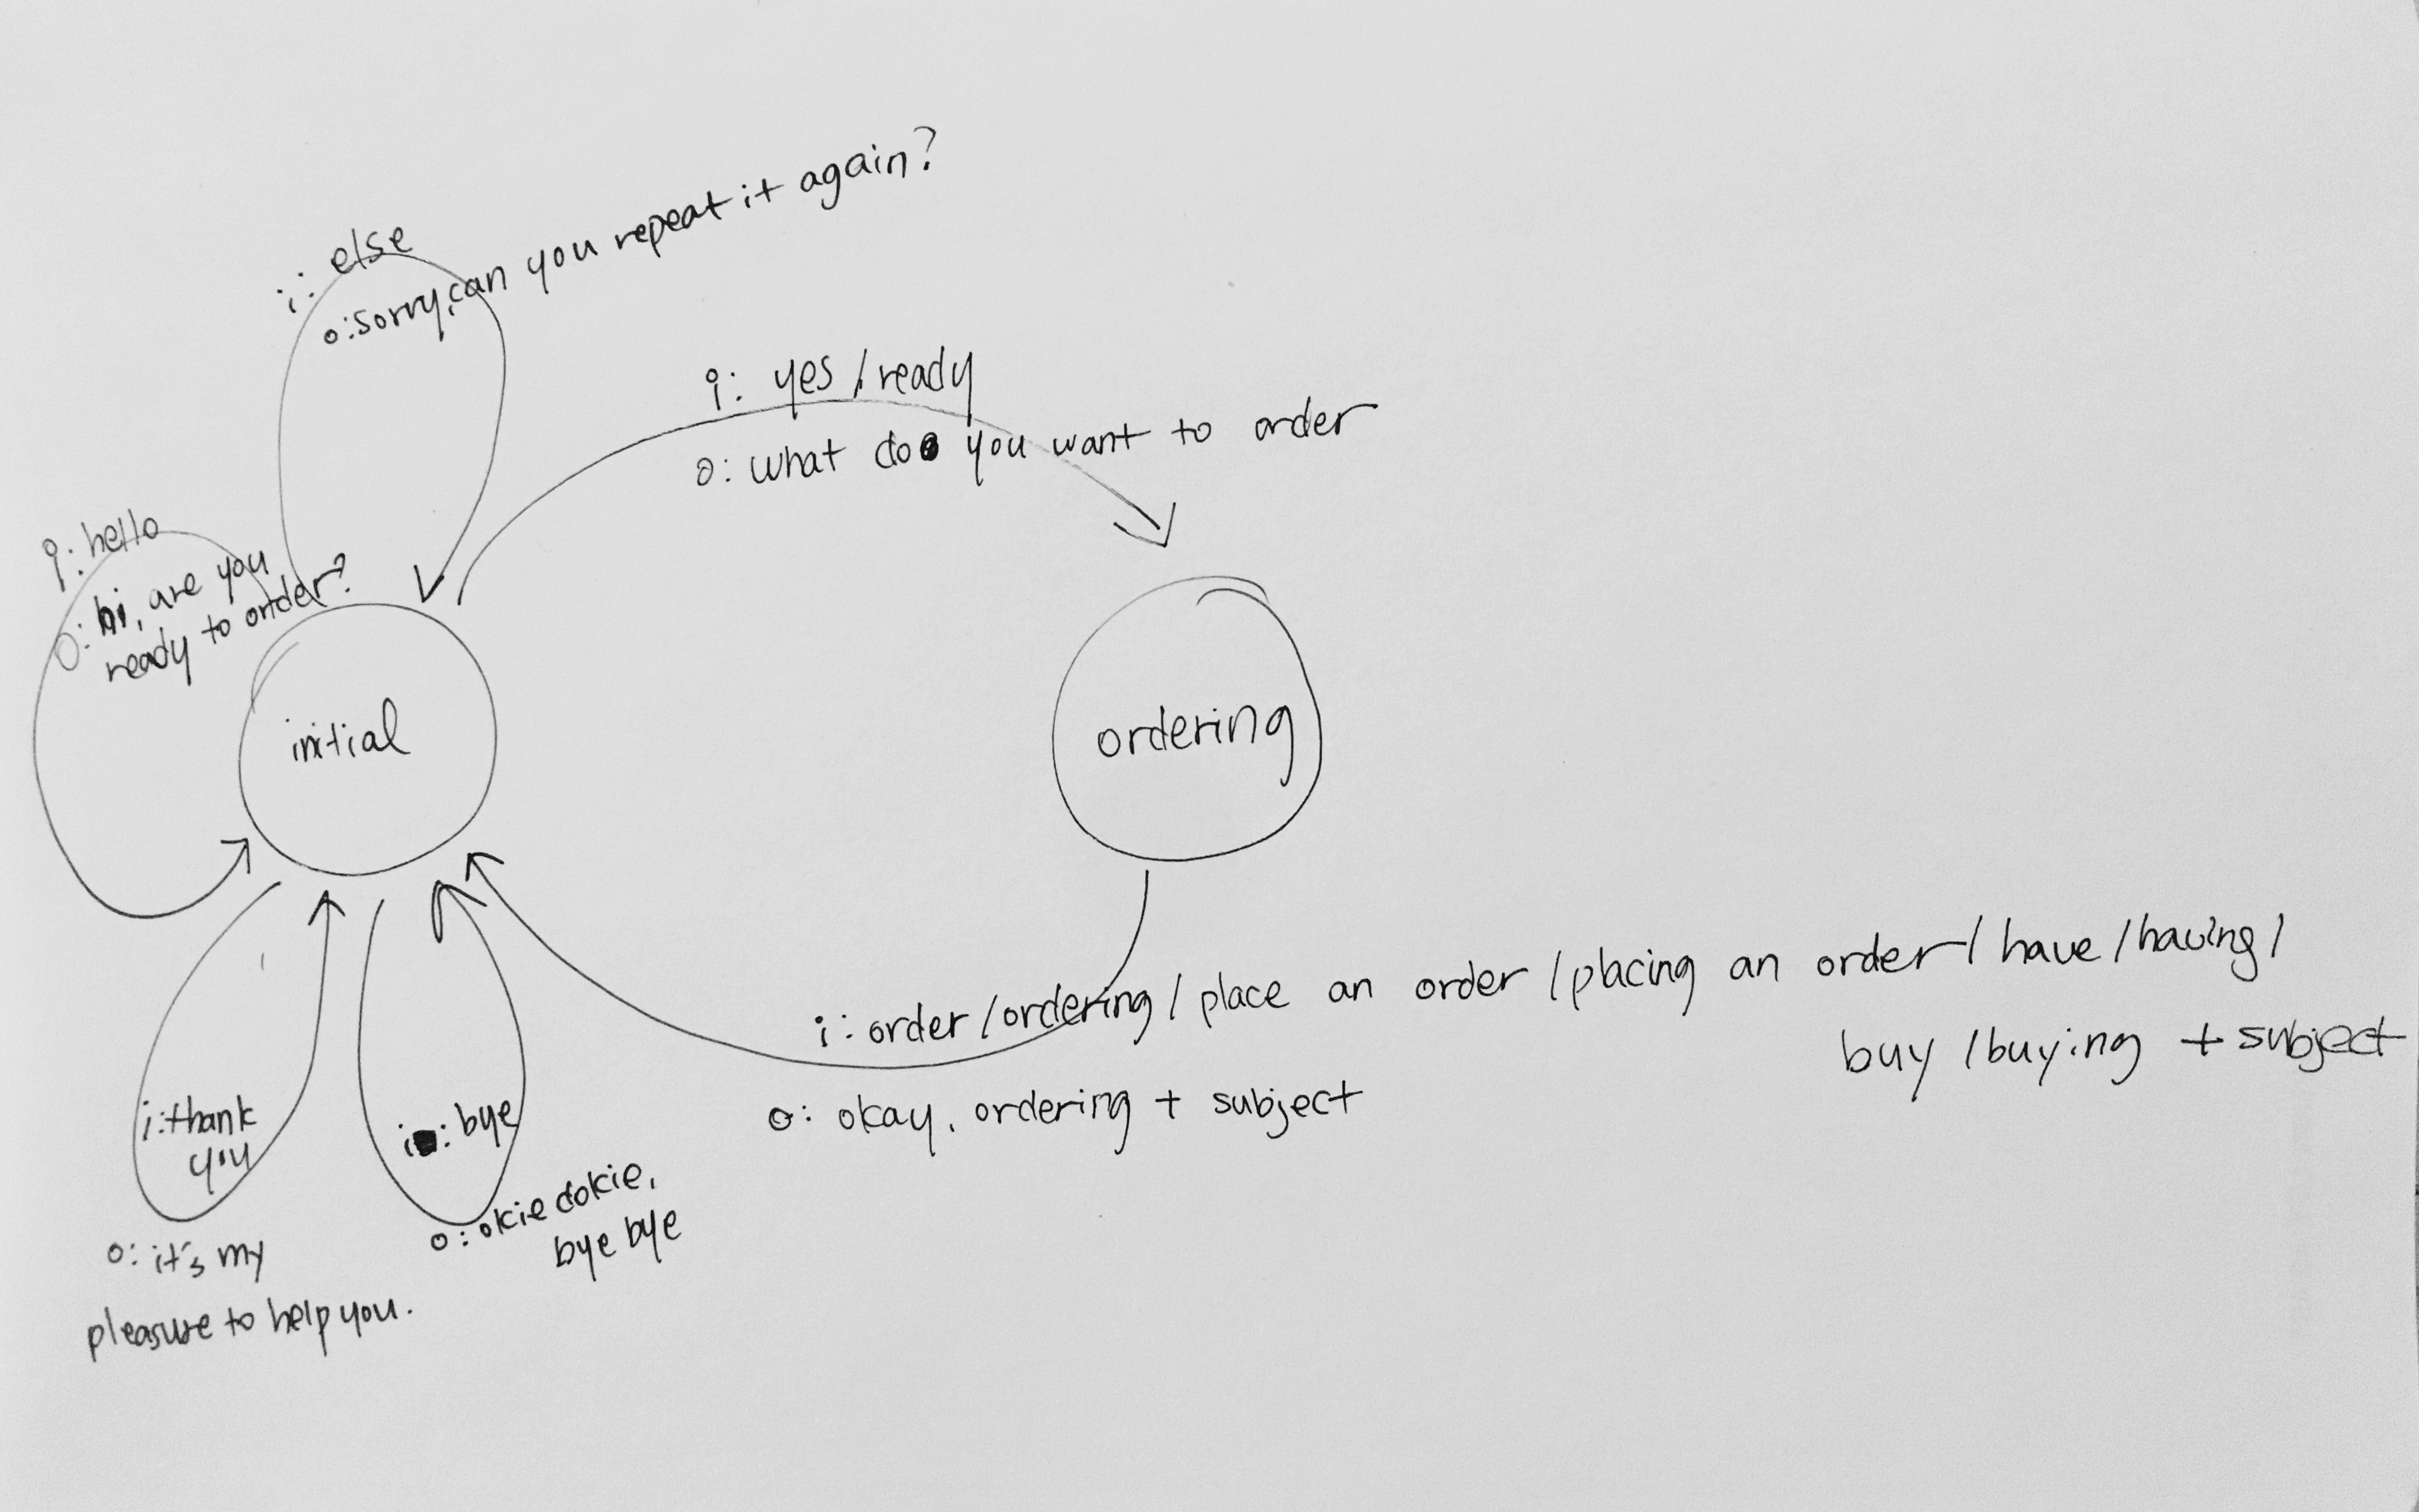 i: else
o: sorry, can you repeat it again?
i: yes / ready
o: what do you want to order
i: hello
o: hi, are you
ready to order?
initial
ordering
i: order / ordering / place an order / placing an order / have / having /
buy / buying + subject
o: okay, ordering + subject
i: thank
you
o: it's my
pleasure to help you.
i: bye
o: okie dokie,
bye bye